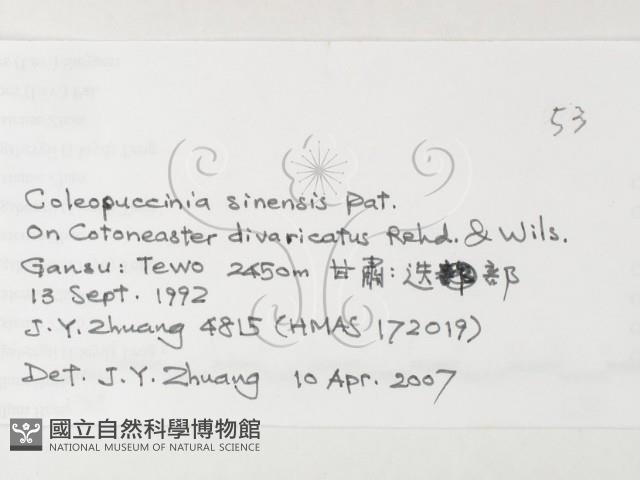 53
Coleopuccinia sinensis Pat.
On Cotoneaster divaricatus Rehd. & Wils.
Gansu: Tewo 2450m 甘肅: 迭部
13 Sept. 1992
J.Y. Zhuang 4815 (HMAS 172019)
Det. J.Y. Zhuang 10 Apr. 2007
國立自然科學博物館
NATIONAL MUSEUM OF NATURAL SCIENCE